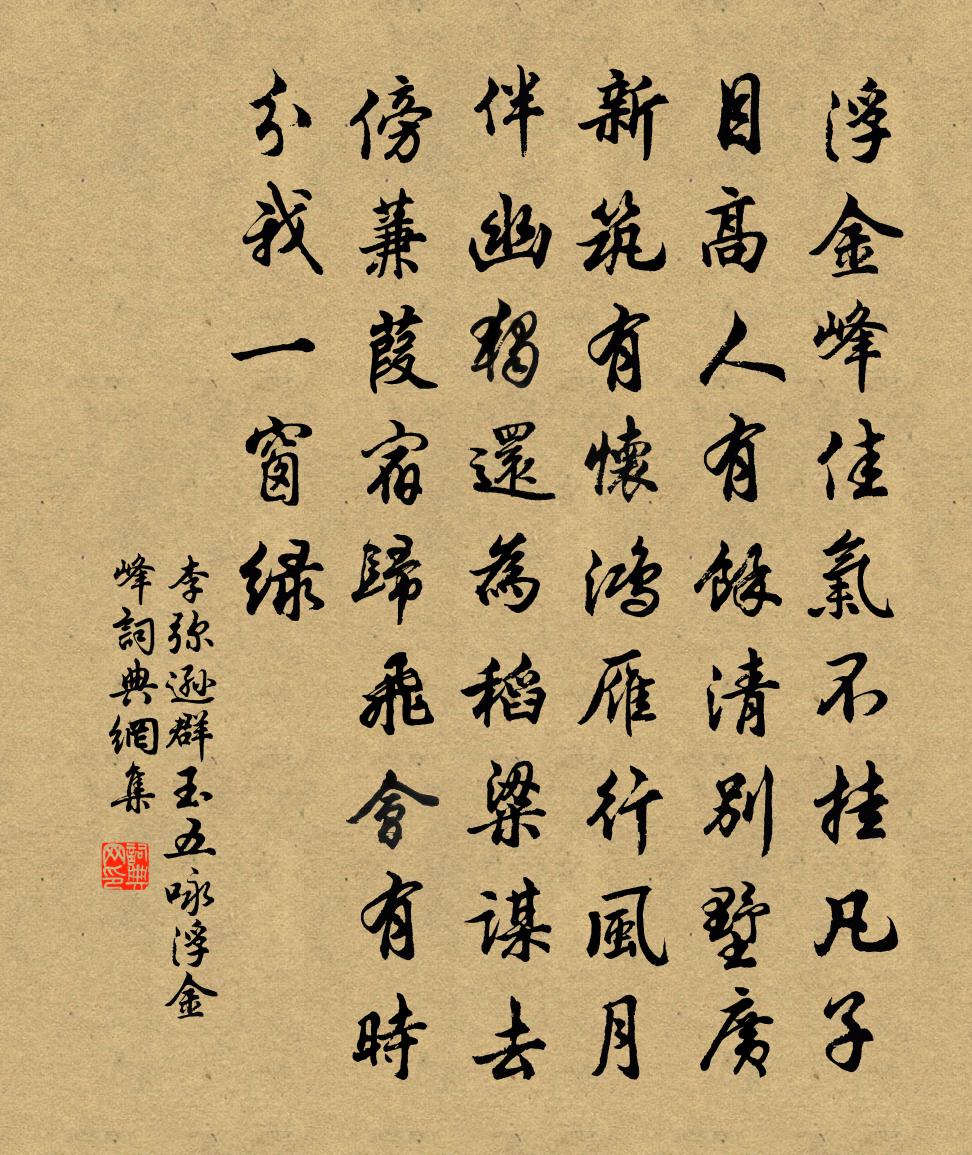 浮金峰佳氣不挂凡子
目高人有餘清別墅廣
新筑有懷鴻雁行風月
伴幽獨還為稻粱謀去
傍蒹葭宿歸飛會有時
分我一窗綠
李弥遜群玉五咏浮金
峰詞典網集
詞典网印